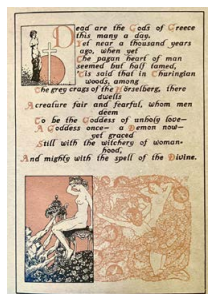 Dead are the Gods of Greece
this many a day.
Yet near a thousand years
ago, when yet
The pagan heart of man
seemed but half tamed,
'Tis said that in Thuringian
woods, among
The grey crags of the Hörselberg, there
dwells
A creature fair and fearful, whom men
deem
To be the Goddess of unholy love—
A Goddess once— a Demon now—
yet graced
Still with the witchery of woman-
hood,
And mighty with the spell of the Divine.